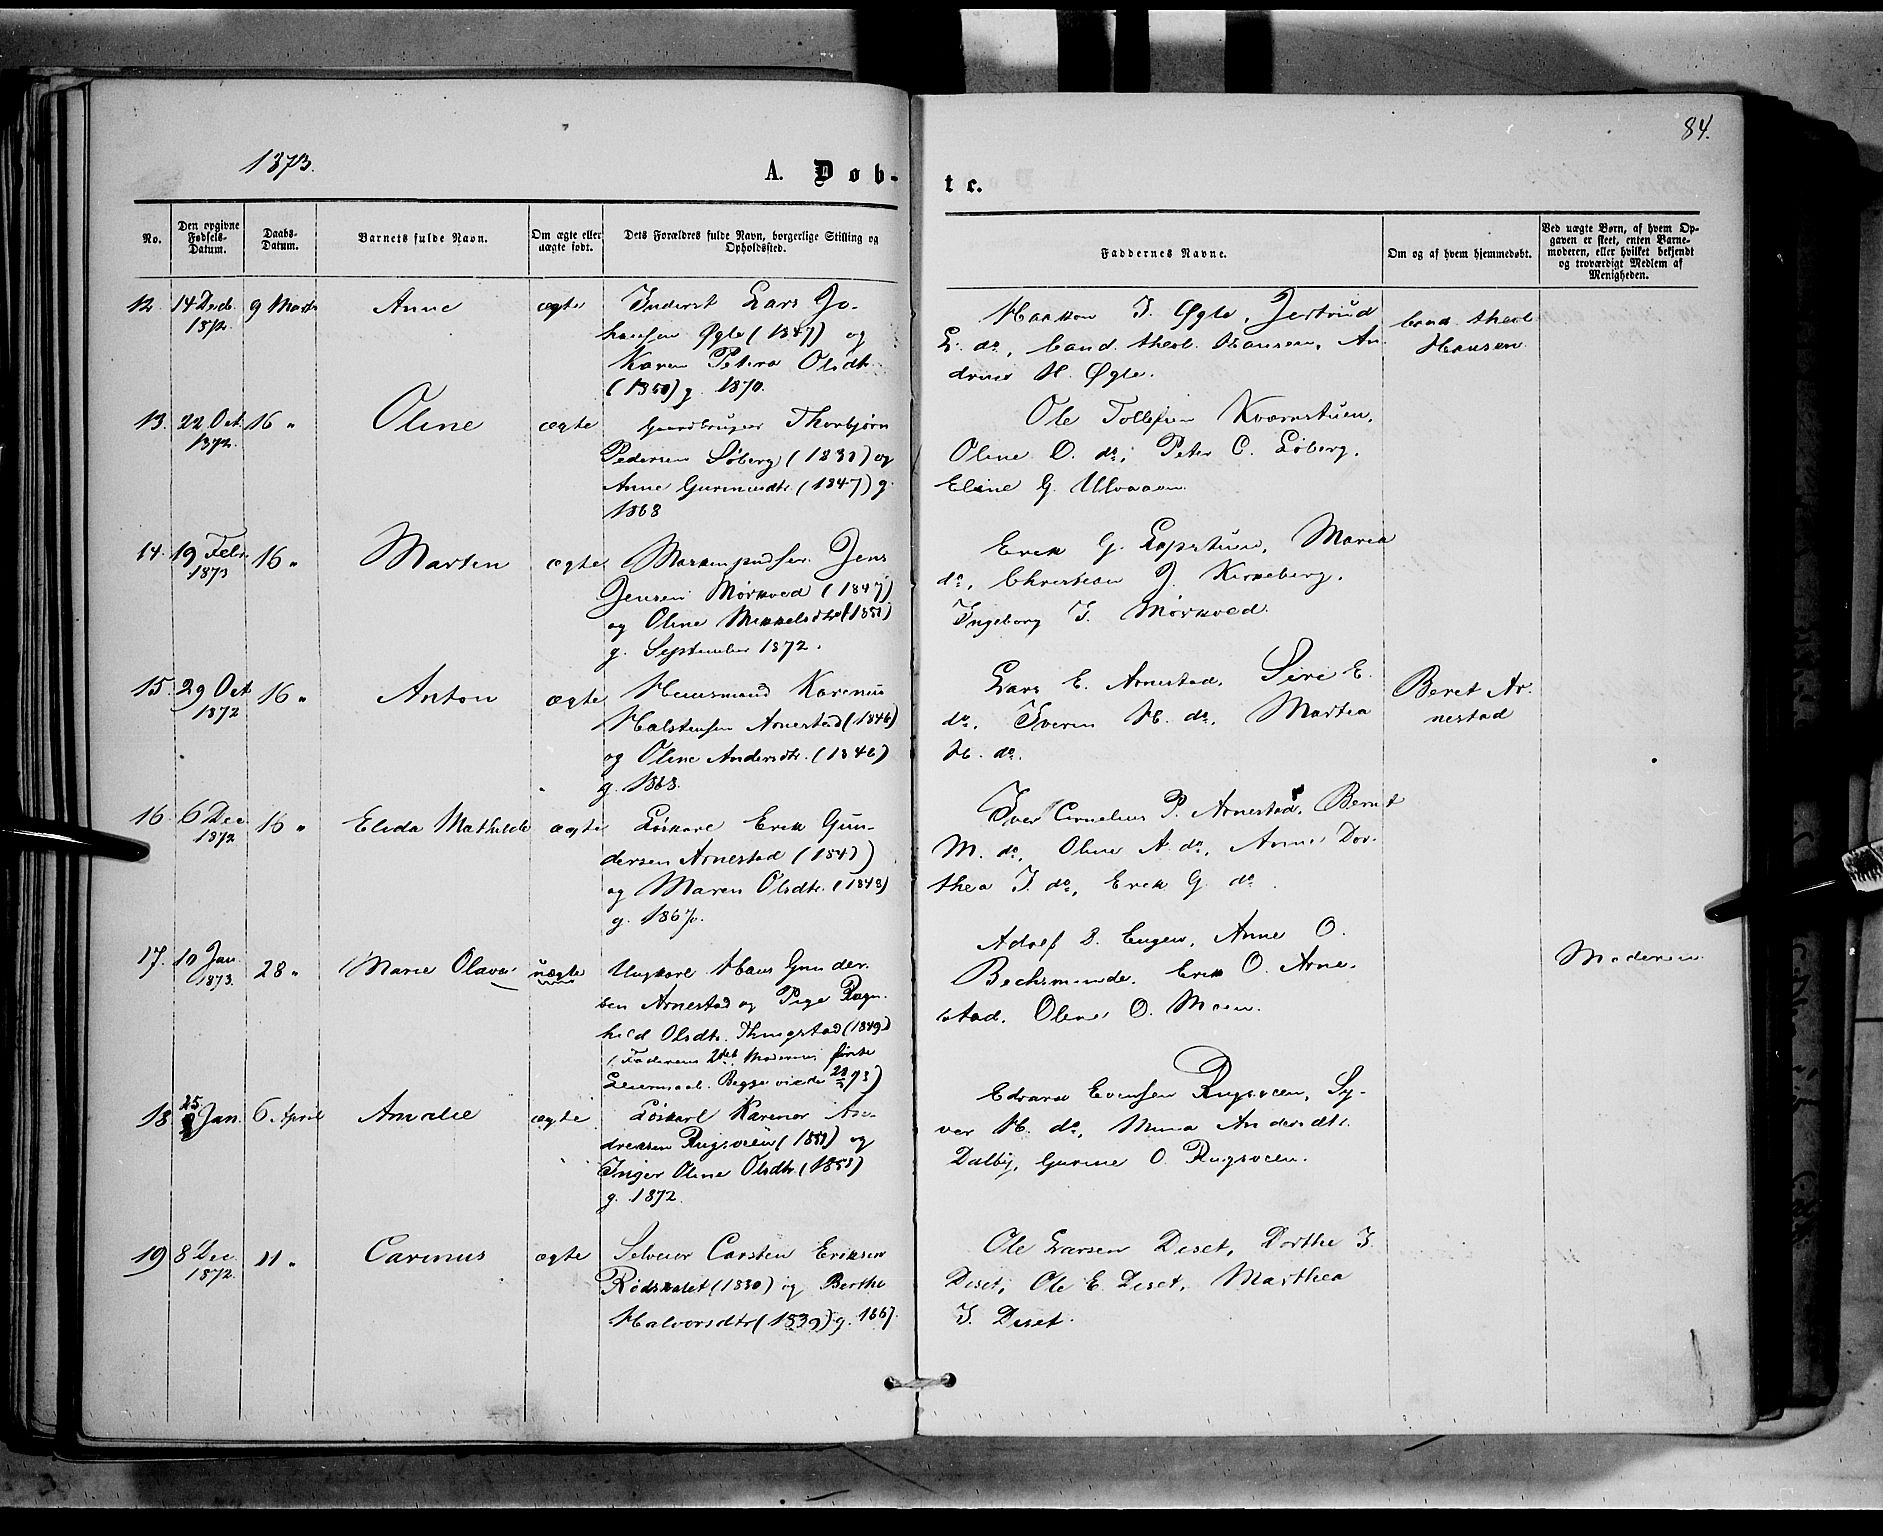 84.
1873.
A. Døb-
te.
No.
Den opgivne Fødsels-Datum.
Daabs-Datum.
Barnets fulde Navn.
Om ægte eller uægte født.
Dets Forældres fulde Navn, borgerlige Stilling og Opholdssted.
Faddernes Navne.
Om og af hvem hjemmedøbt.
Ved uægte Børn, af hvem Opgaven er skeet, enten Barnemoderen, eller hvilket bekjendt og troværdigt Medlem af Menigheden.
12. 14 Decb. 1872 9 Marts Anne ægte Inderst Lars Jo-
hansen Øgle (1847) og
Karen Petera Olsdtr.
(1850) g. 1870.
Haakon J. Øgle, Jertrud
L. do, Cand. theol. Hansen, An-
drine H. Øgle.
Cand. theol
Hansen
13. 22 Oct. 1872. 16 " Oline ægte Gaardbruger Thorbjørn
Pedersen Løberg (1830) og
Anne Gurinusdtr. (1847) g.
1868
Ole Tollefsen Kværnstuen,
Oline O. do, Peter C. Løberg,
Eline G. Ulvaaen
14. 19 Febr. 1873 16 " Martin ægte Maskenpudser Jens
Jensen Mørkved (1847)
og Oline Mikkelsdtr (1851)
g. September 1872.
Erik G. Lopstuen, Maria
do, Christian J. Kirkeberg,
Ingeborg J. Mørkved.
15. 29 Oct 1872 16 " Anton ægte Huusmand Karenus
Halstensen Arnestad (1846)
og Oline Andersdtr. (1846)
g. 1868.
Lars E. Arnestad, Siri E.
do, Iverin H. do, Martea
H. do.
Beret Ar-
nestad
16. 6 Dec 1872 16 " Elida Mathilde ægte Løskarl Erik Gun-
dersen Arnestad (1847)
og Maren Olsdtr. (1848)
g. 1867.
Iver Cornelius P. Arnestad, Bernt
M. do, Oline A. do, Anne Dor-
thea J. do, Erik G. do.
17. 10 Jan. 1873. 28 " Marie Olava uægte Ungkarl Hans Gunder-
sen Arnestad og Pige Ragn-
hild Olsdtr. Thingstad (1849)
(Faderens 2det Moderens første
Leiermaal. Begge viede 28/3 73)
Adolf B. Engen, Anne O.
Bechsminde, Erik O. Arne-
stad, Oline O. Moen.
Moderen
18 25 Jan. 6 April Amalie ægte Løskarl Karenor An-
dreasen Rugsveen (1851) og
Inger Oline Olsdtr. (1851)
g. 1872.
Edvard Evensen Rugsveen, Sy-
ver H. do, Mina Andersdtr.
Dalby, Gurine O. Rugsveen.
19 8 Dec. 1872. 11 " Carinus ægte Selveier Carsten Eriksen
Rødskalet (1830) og Berthe
Halvorsdtr (1839) g. 1867.
Ole Larsen Deset, Dorthe J.
Deset, Ole E. Deset, Marthea
J. Deset.